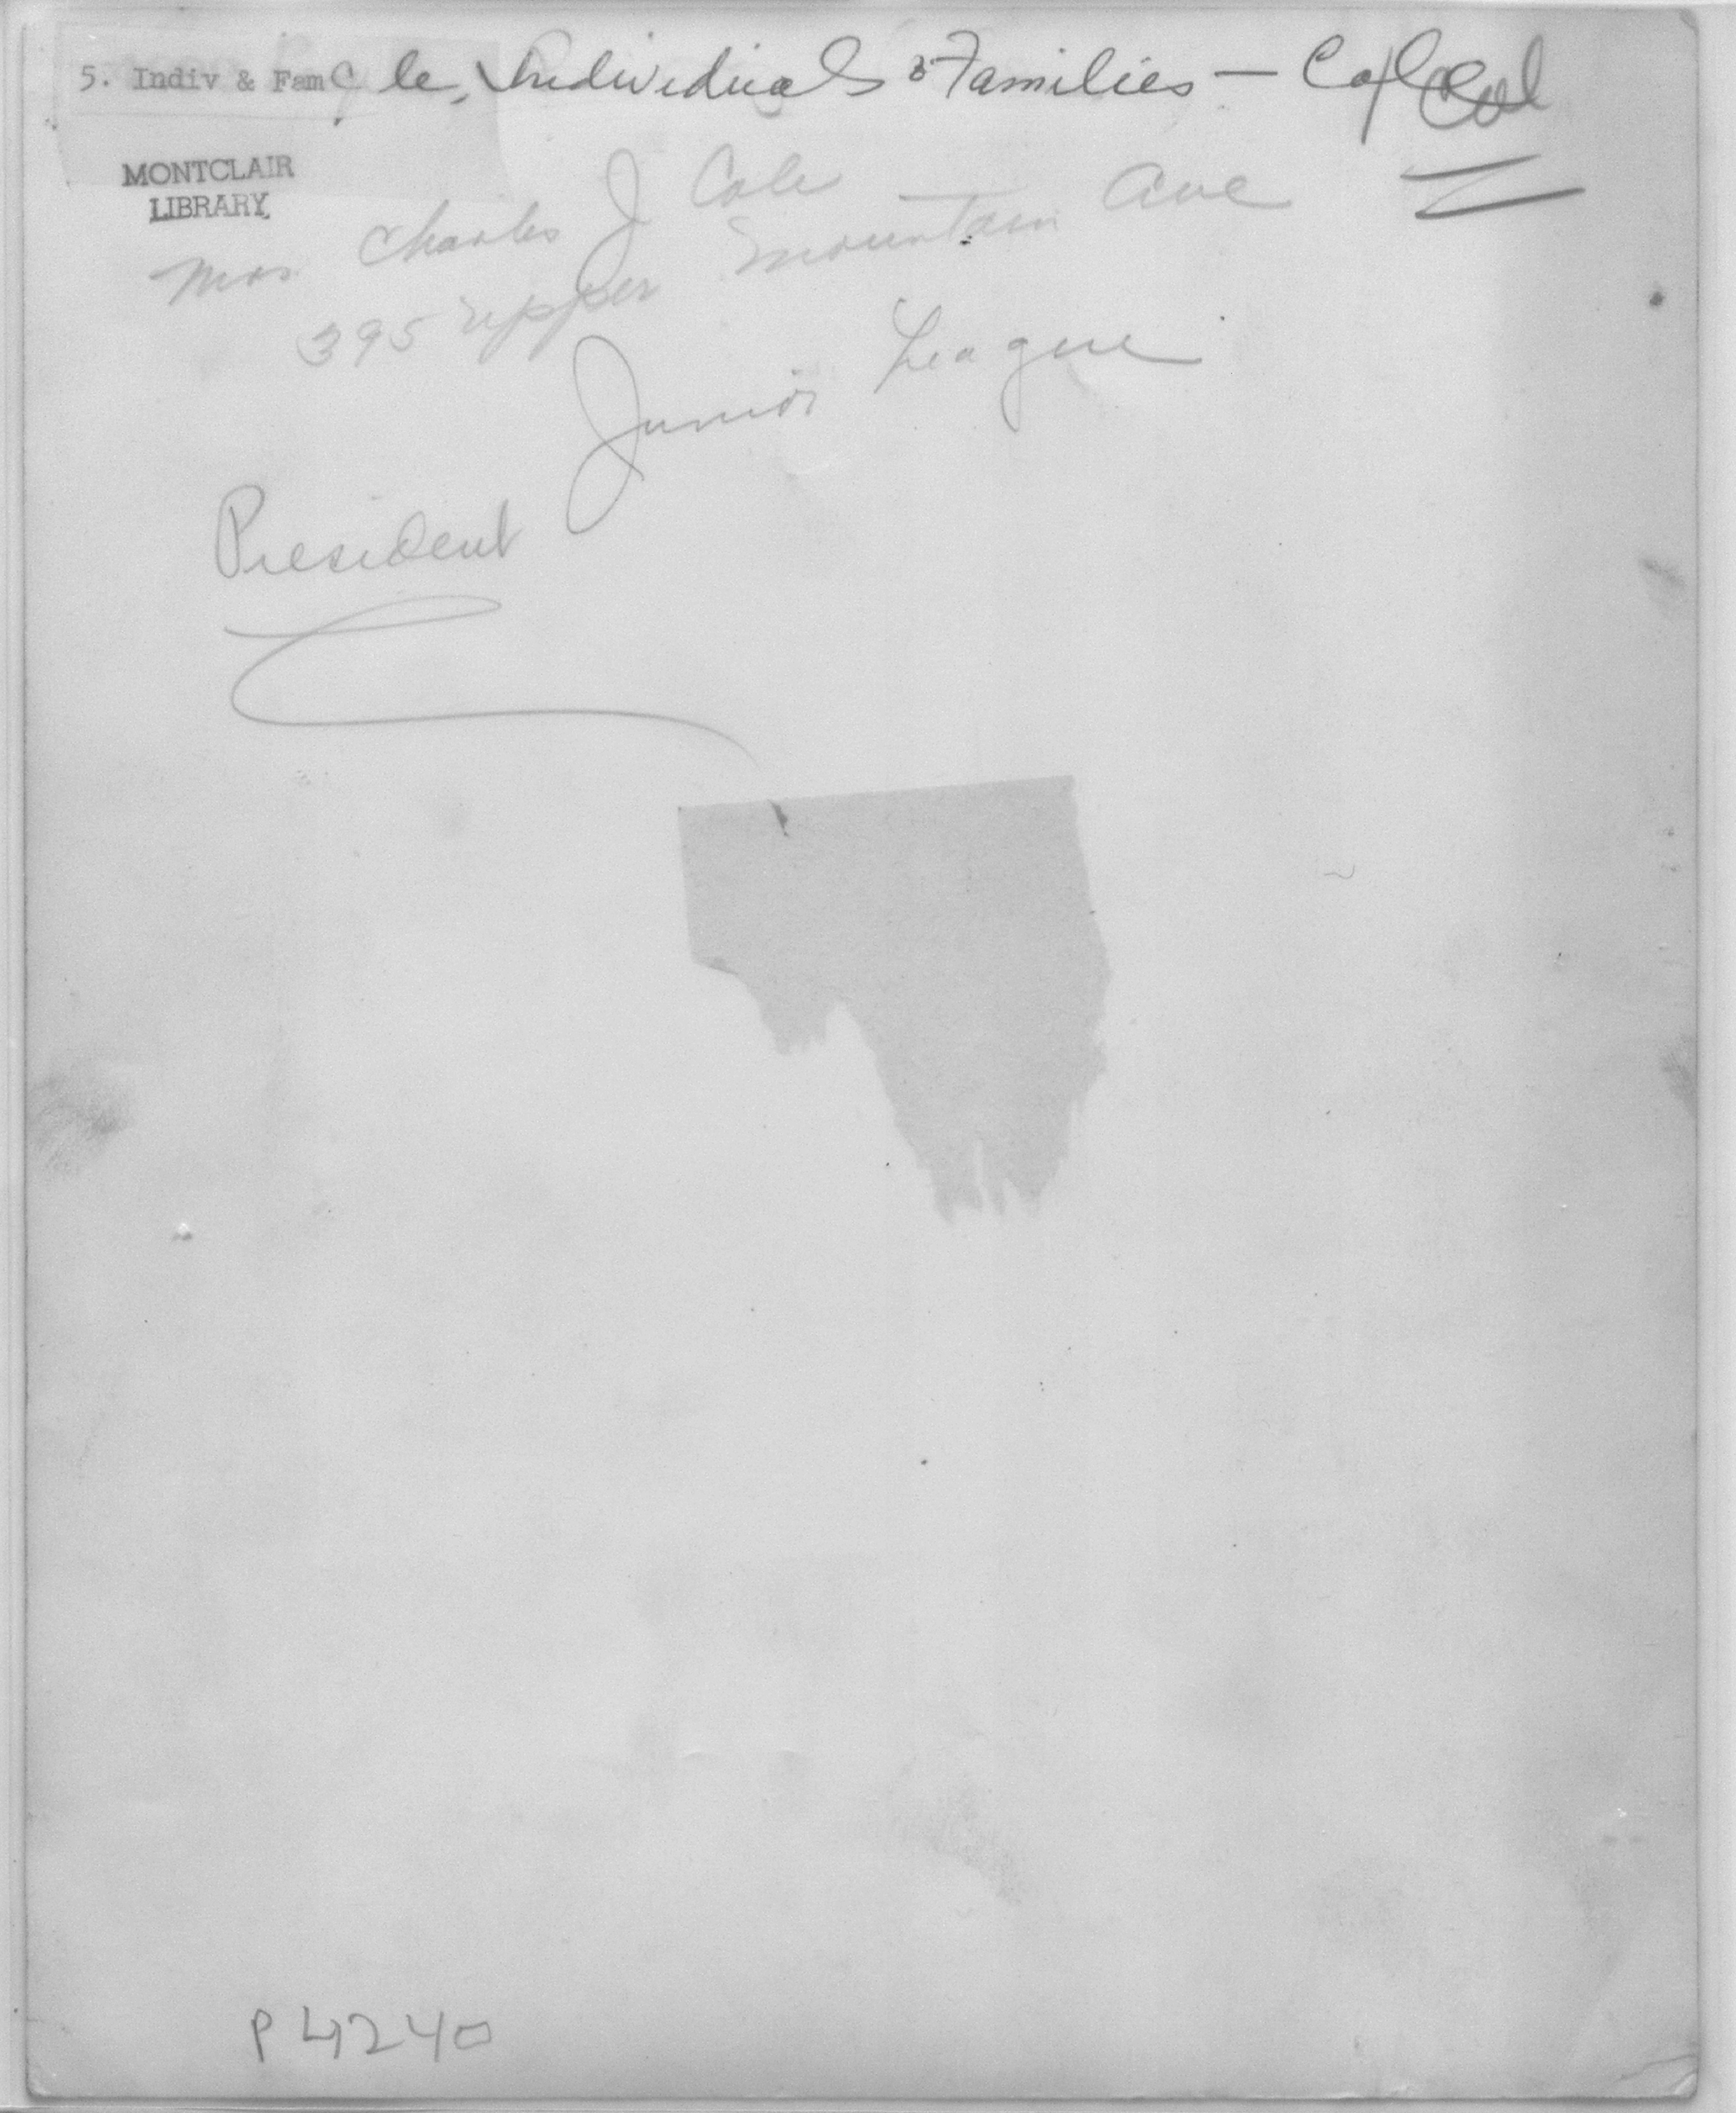 5. Indiv & Fam Cole, Individuals & Families — Col
MONTCLAIR
LIBRARY
Mrs Charles J Cole
395 Upper Mountain Ave
Junior League
President
P4240